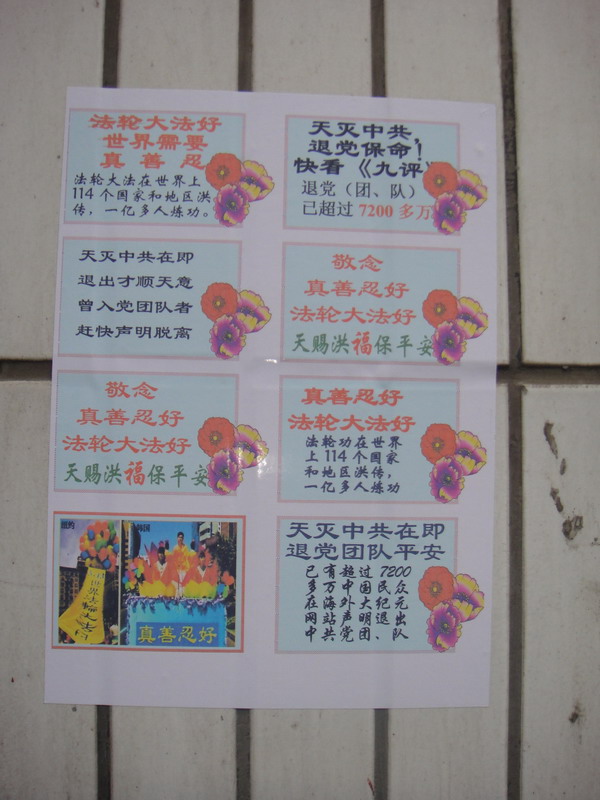 法轮大法好
世界需要
真善忍
法轮大法在世界上
114个国家和地区洪
传，一亿多人炼功。
天灭中共，
退党保命！
快看《九评》
退党（团、队）
已超过7200多万
天灭中共在即
退出才顺天意
曾入党团队者
赶快声明脱离
敬念
真善忍好
法轮大法好
天赐洪福保平安
敬念
真善忍好
法轮大法好
天赐洪福保平安
真善忍好
法轮大法好
法轮功在世界
上114个国家
和地区洪传，
一亿多人炼功
纽约
韩国
真善忍好
天灭中共在即
退党团队平安
已有超过7200
多万中国民众
在海外大纪元
网站声明退出
中共党团、队